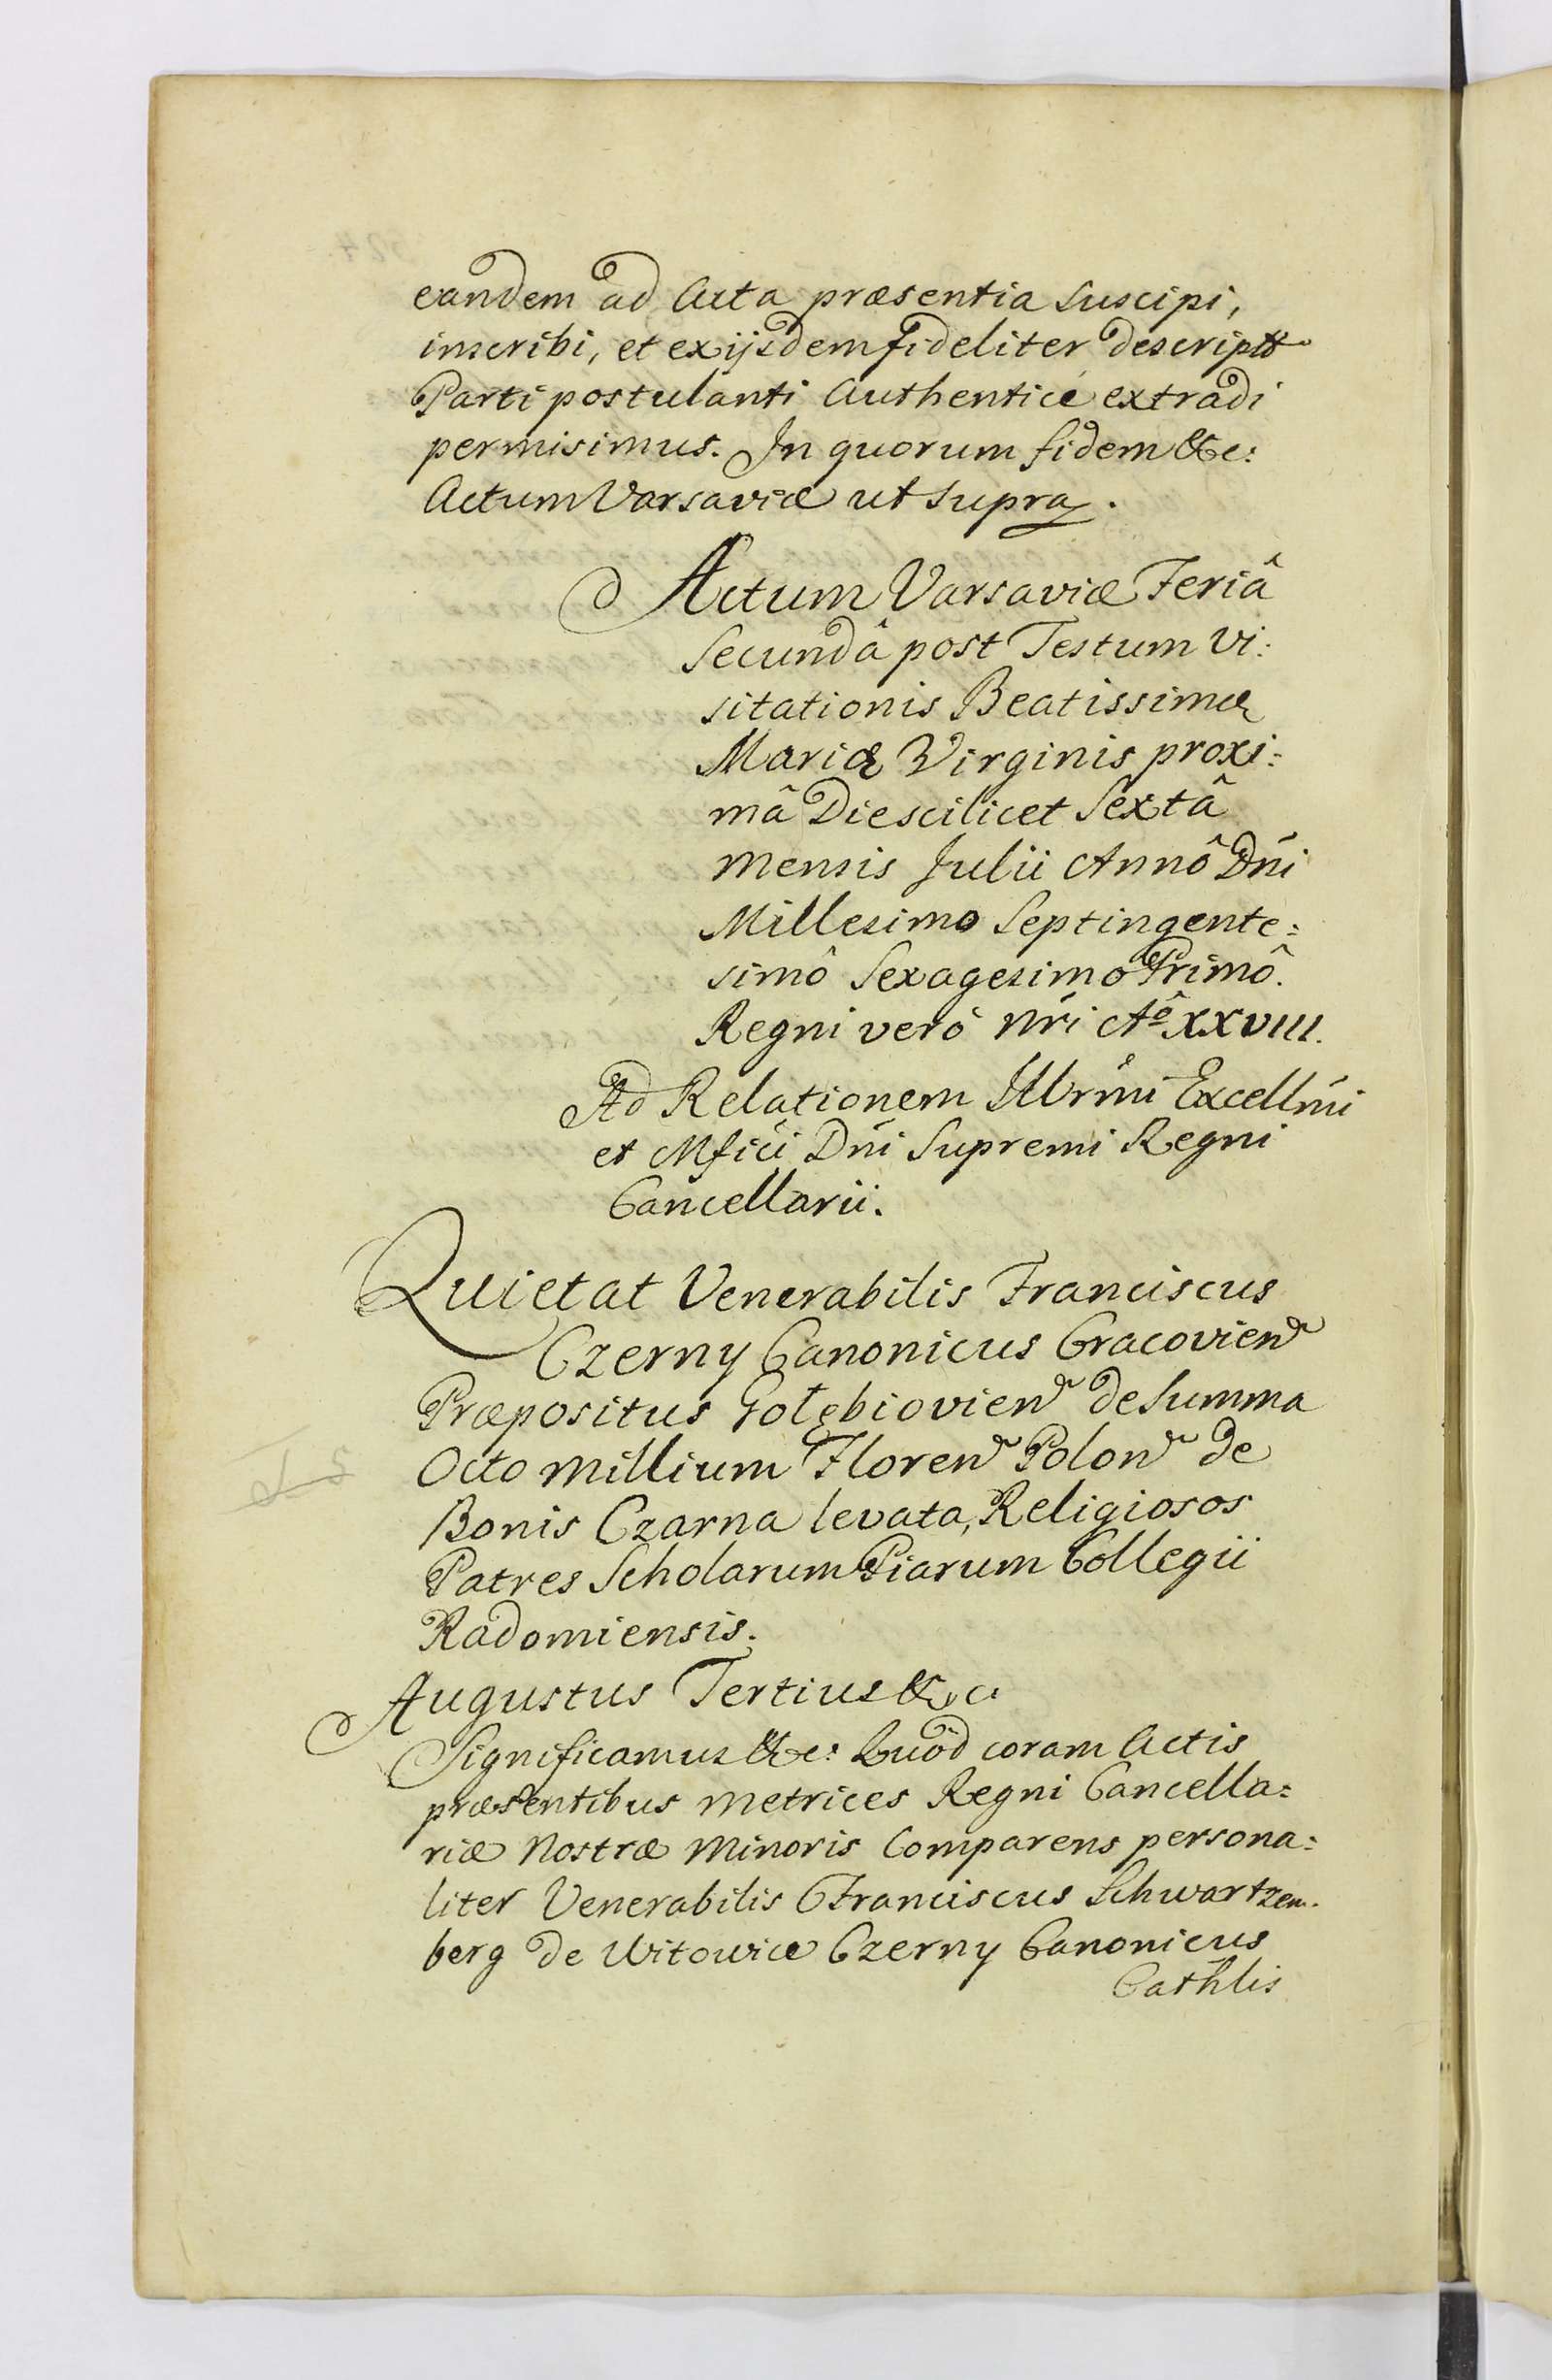 eandem ad Acta præsentia suscipi,
inscribi, et ex ijsdem fideliter descript
Parti postulanti Authenticè extradi
permisimus. In quorum fidem &c:
Actum Varsaviæ ut supra.
Actum Varsaviæ Feriâ
Secundâ post Festum Vi:
sitationis Beatissimæ
Mariæ Virginis proxi:
mâ Die scilicet Sextâ
mensis Julii Annô Dńi
Millesimo Septingente:
simô Sexagesimo Primô.
Regni verò nŕi Aō XXVIII.
Ad Relationem Illŕmi Excellḿi
et Mfići Dńi Supremi Regni
Cancellarii.
Quietat Venerabilis Franciscus
Czerny Canonicus Cracovien
Præpositus Gołębiovien de Summa
Octo Millium Floren Polon de
Bonis Czarna levata, Religiosos
Patres Scholarum Piarum Collegii
Radomiensis.
Augustus Tertius &c:
Significamus &c: Quòd coram Actis
præsentibus Metrices Regni Cancella:
riæ Nostræ Minoris Comparens persona:
liter Venerabilis Franciscus Schwartzem.
berg de Witowice Czerny Canonicus
Cathlis